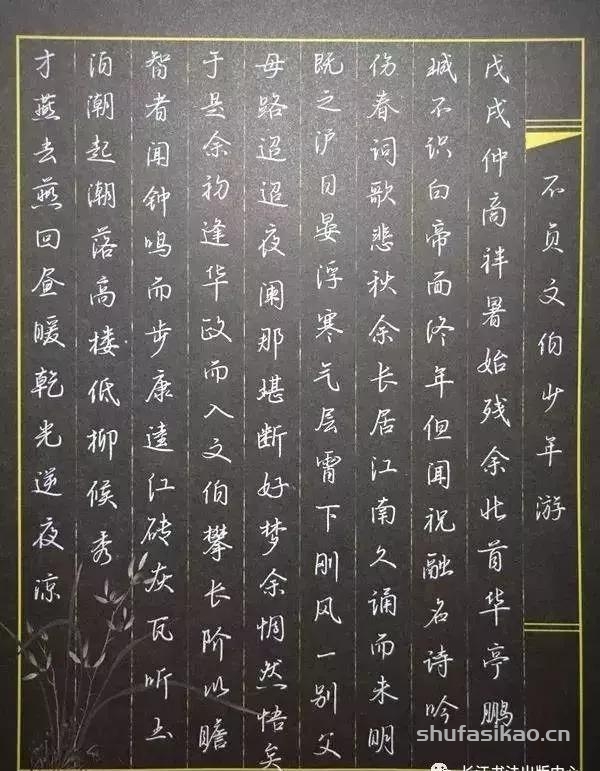 不负文伯少年游
戊戌仲商祥暑始残余北首华亭鹏
城不识白帝面终年但闻祝融名诗吟
伤春词歌悲秋余长居江南久诵而未明
既之沪日晏浮寒气层霄下刚风一别父
母路迢迢夜阑那堪断好梦余惘然悟矣
于是余初逢华政而入文伯攀长阶以瞻
智者闻钟鸣而步康逵江砖灰瓦听土
泊潮起潮落高楼低柳候秀
才燕去燕回昼暖乾光逆夜凉
shufasikao.cn
长江书法出版中心